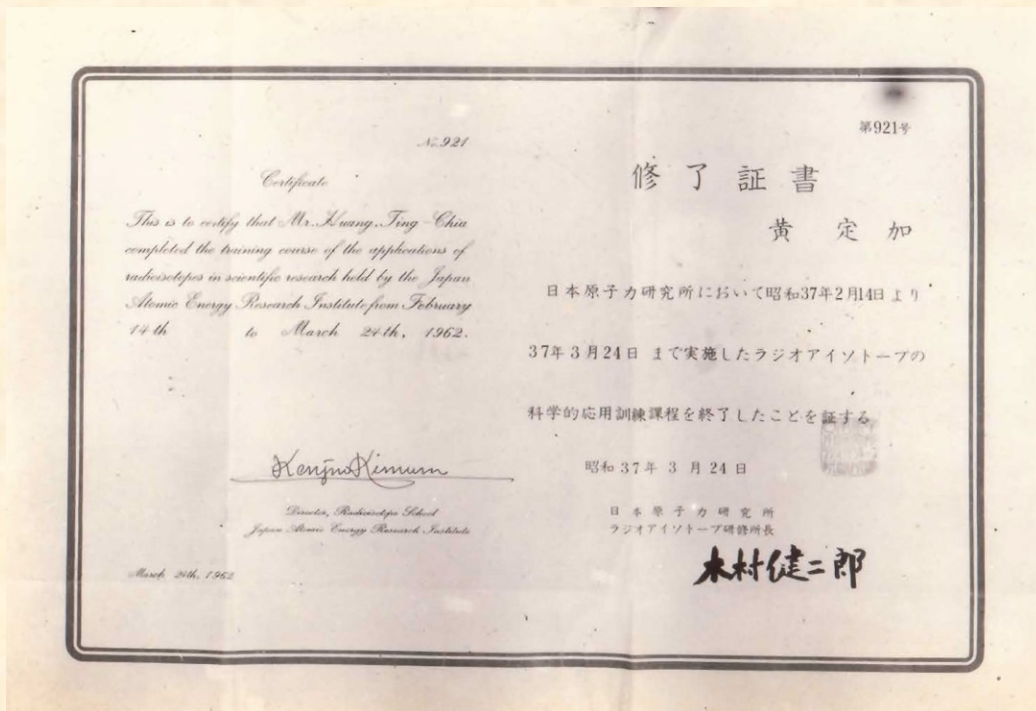 No.921
Certificate
This is to certify that Mr. Huang, Ting-Chia
completed the training course of the applications of
radioisotopes in scientific research held by the Japan
Atomic Energy Research Institute from February
14-th to March 24-th, 1962.
Kenjiro Kimura
Director, Radioisotope School
Japan Atomic Energy Research Institute
March 24th, 1962
第921号
修了証書
黄定加
日本原子力研究所において昭和37年2月14日より
37年3月24日 まで実施したラジオアイソトープの
科学的応用訓練課程を終了したことを証する
昭和37年3月24日
日本原子力研究所
ラジオアイソトープ研修所長
木村健二郎